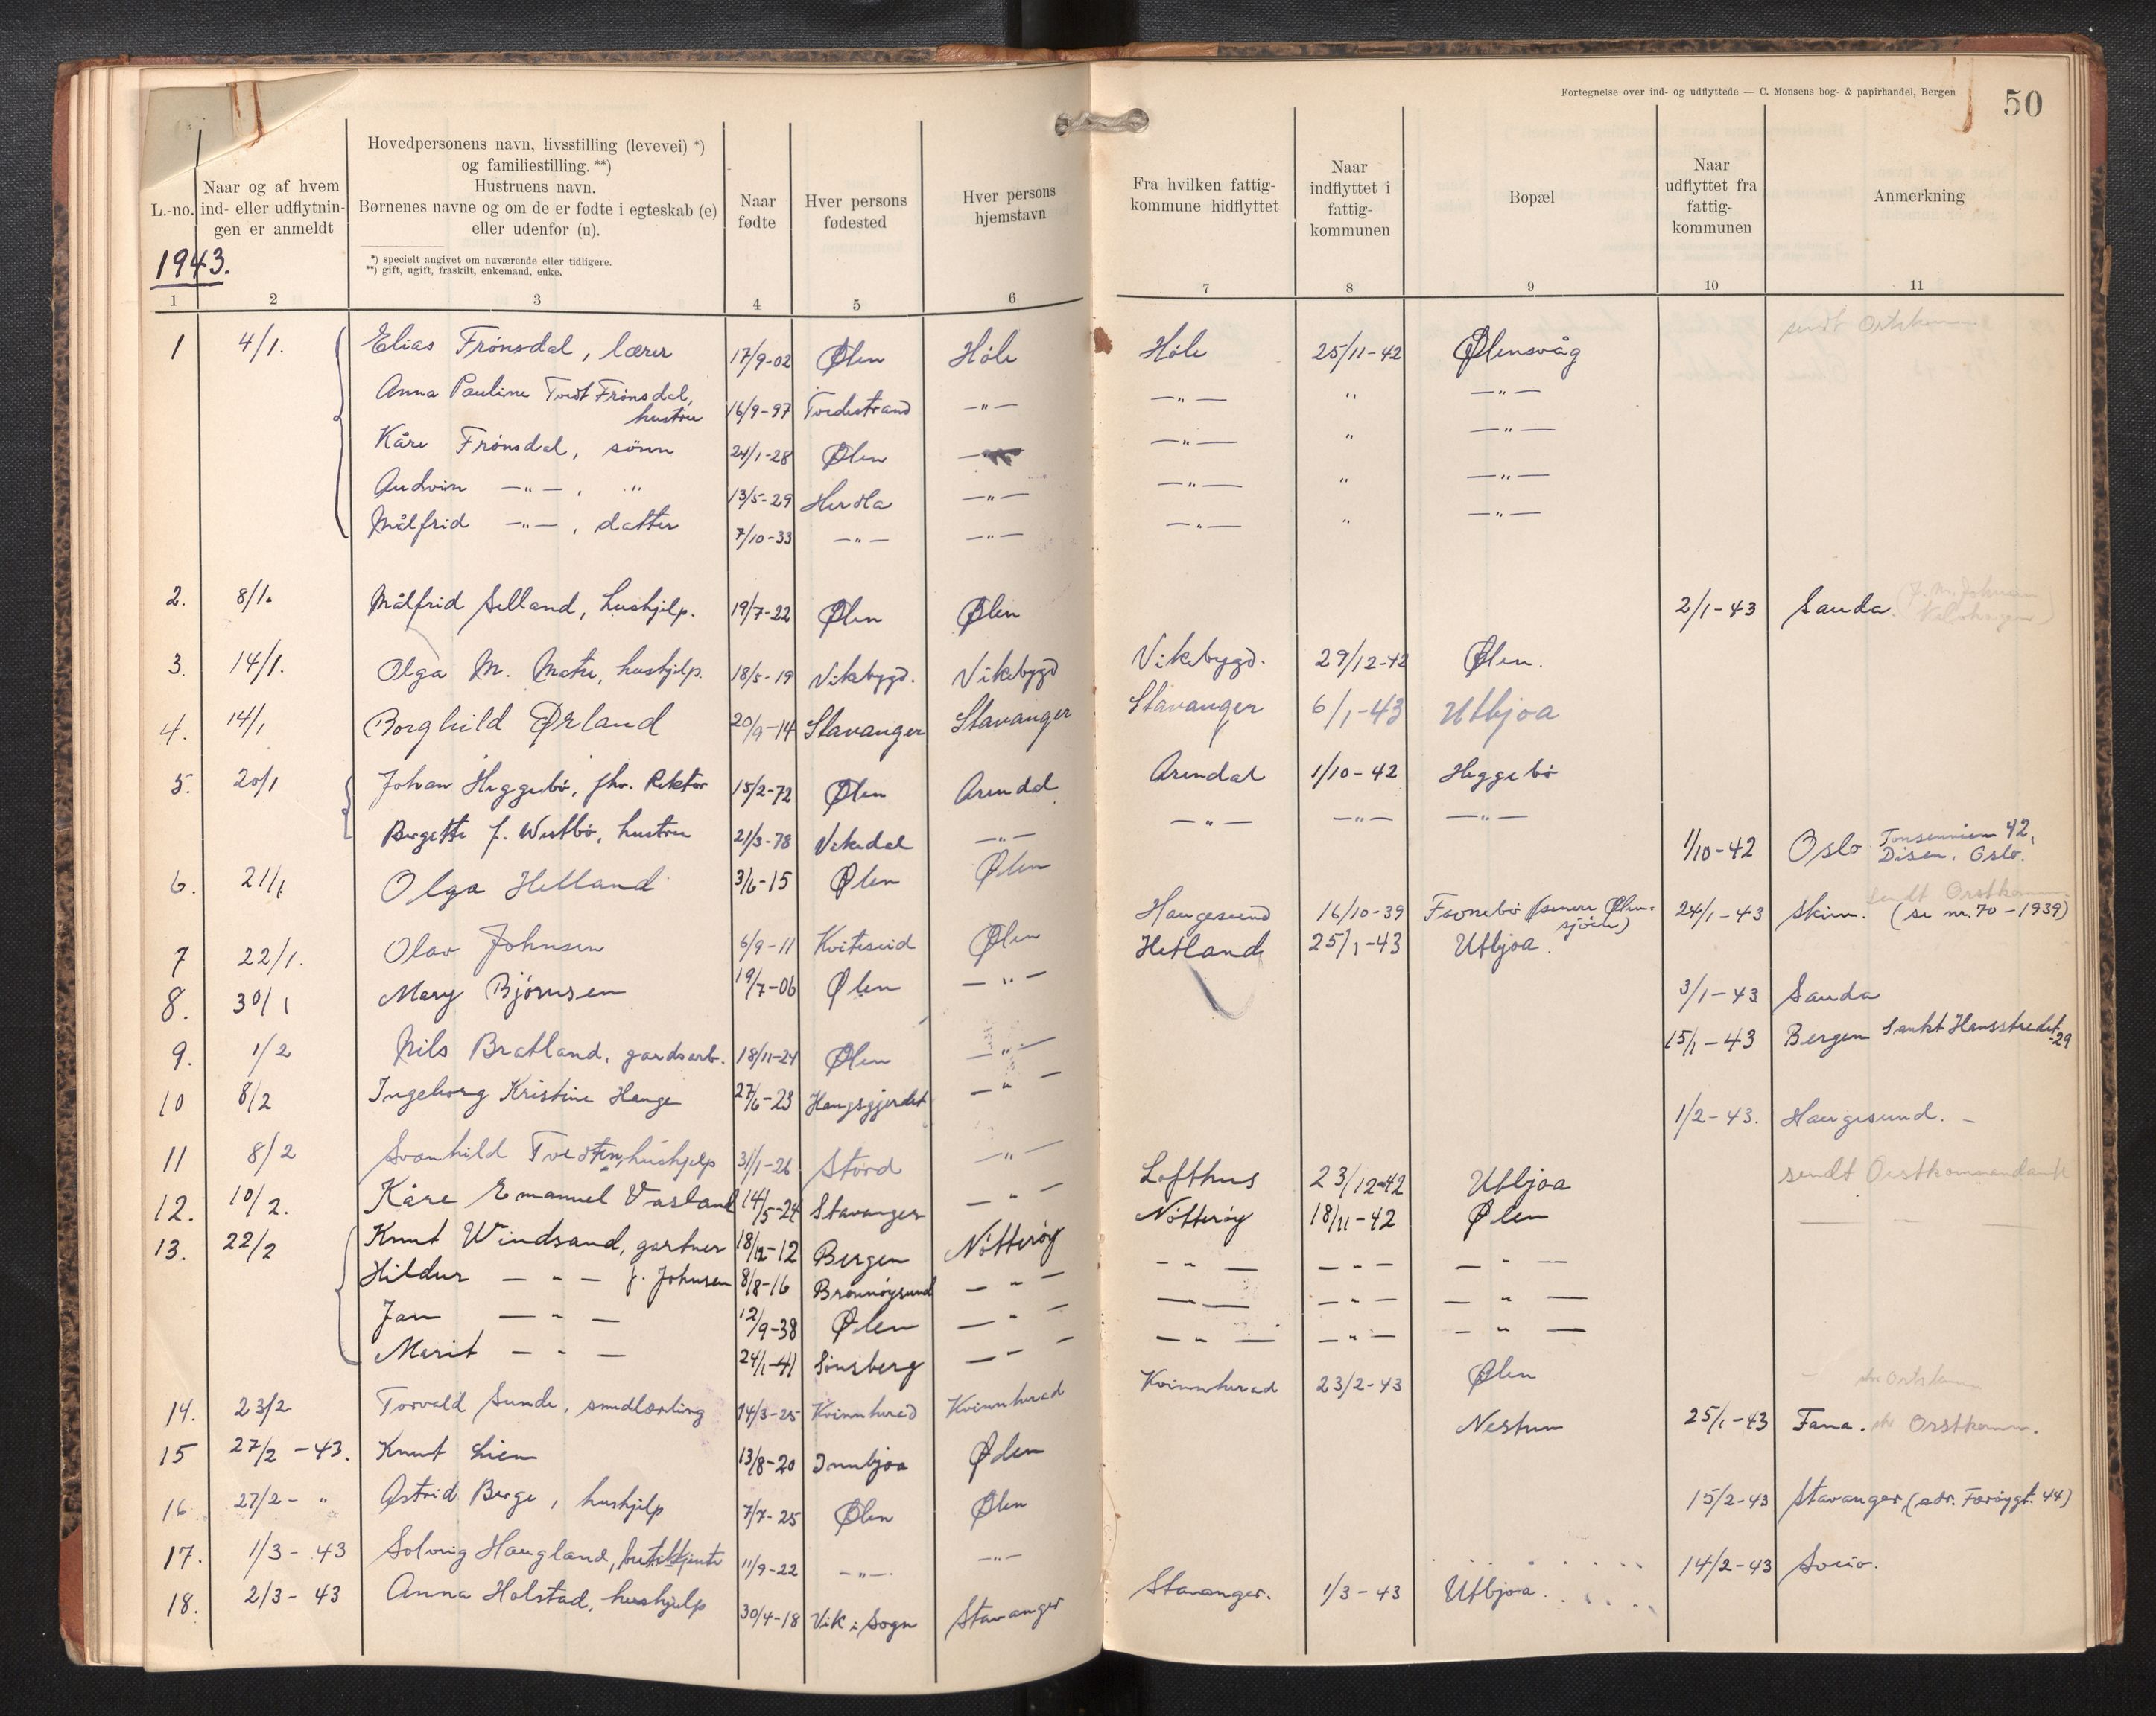 Fortegnelse over ind- og udflyttede — C. Monsens bog- & papirhandel, Bergen
50
L.-no.
Naar og af hvem ind- eller udflytningen er anmeldt
Hovedpersonens navn, livsstilling (levevei) *)
og familiestilling. **)
Hustruens navn.
Børnenes navne og om de er fødte i egteskab (e)
eller udenfor (u).
*) specielt angivet om nuværende eller tidligere.
**) gift, ugift, fraskilt, enkemand, enke.
Naar fødte
Hver persons fødested
Hver persons hjemstavn
Fra hvilken fattigkommune hidflyttet
Naar indflyttet i fattigkommunen
Bopæl
Naar udflyttet fra fattigkommunen
Anmerkning
1943.
1 2 3 4 5 6 7 8 9 10 11
1 4/1. Elias Frönsdal, lærer 17/9-02 Ølen Höle Höle 25/11-42 Ølensvåg
Anna Pauline Tvedt Frönsdal, hustru 16/9-97 Tvedestrand —"— —"— " —"—
Kåre Frönsdal, sönn 24/1-28 Ølen —"— " —"—
Audvin —"—, " 13/5-29 Herdla —"— —"— " —"—
Målfrid —"—, datter 7/10-33 —"— —"— —"— " —"—
2. 8/1. Målfrid Selland, hushjelp. 19/7-22 Ølen Ølen 2/1-43 Sauda.
3. 14/1. Olga M. Matre, hushjelp. 18/5-19 Vikebygd. Vikebygd Vikebygd. 29/12-42 Ølen.
4. 14/1 Borghild Ørland 20/9-14 Stavanger Stavanger Stavanger 6/1-43 Utbjoa
5. 20/1 Johan Heggebö, fhv. Rektor 15/2-72 Ølen Arendal Arendal 1/10-42 Heggebö
Bergette f. Westbö, hustru 21/3-78 Vikedal —"— —"— —"— —"—
6. 21/1 Olga Helland 3/6-15 Ølen Ølen 1/10-42 Oslo Tonsenveien 42, Disen, Oslo.
7 22/1. Olav Johnsen 6/9-11 Kviteseid Ølen Haugesund 16/10-39 (senere Ølensjöen) 24/1-43 Skien. (se nr. 70-1939)
8. 30/1 Mary Björnsen 19/7-06 Ølen —"— Hetland 25/1-43 Utbjoa. 3/1-43 Sauda
9. 1/2 Nils Bratland, gardsarb. 18/11-24 Ølen —"— 15/1-43 Bergen Sankt Hansstredet 29
10 8/2 Ingeborg Kristine Hauge 27/6-23 Haugsgjerdet —"— 1/2-43. Haugesund. —
11 8/2 Svanhild Tvedten, hushjelp 31/1-26 Stord —"— Lofthus 23/12-42 Utbjoa sendt Orstkommandant
12. 10/2. Kåre Emanuel Vasland 14/5-24 Stavanger —"—
13. 22/2 Knut Windsand, gartner 18/12-12 Bergen Nötteröy Nötteröy 18/11-42 Ølen
Hildur —"— f. Johnsen 8/8-16 Brønnøysund —"— —"— —"— —"—
Jan —"— 12/9-38 Ølen —"— —"— —"— —"—
Marit —"— 24/1-41 —"— —"— —"— —"—
14. 23/2 Torvald Sunde, smedlærling 14/3-25 Kvinnherad Kvinnherad Kvinnherad 23/2-43 Ølen
15 27/2-43. Knut Lien 13/8-20 Innbjoa Ølen Nestun 25/1-43 Fana. Orstkomm.
16. 27/2- " Astrid Berge, hushjelp 7/7-25 Ølen Ølen 15/2-43 Stavanger,
17. 1/3-43 Solveig Haugland, 11/9-22 —"— —"— 14/2-43
18. 2/3-43 Anna Holstad, hushjelp 30/4-18 Vik i Sogn Stavanger Stavanger. 1/3-43 Utbjoa.